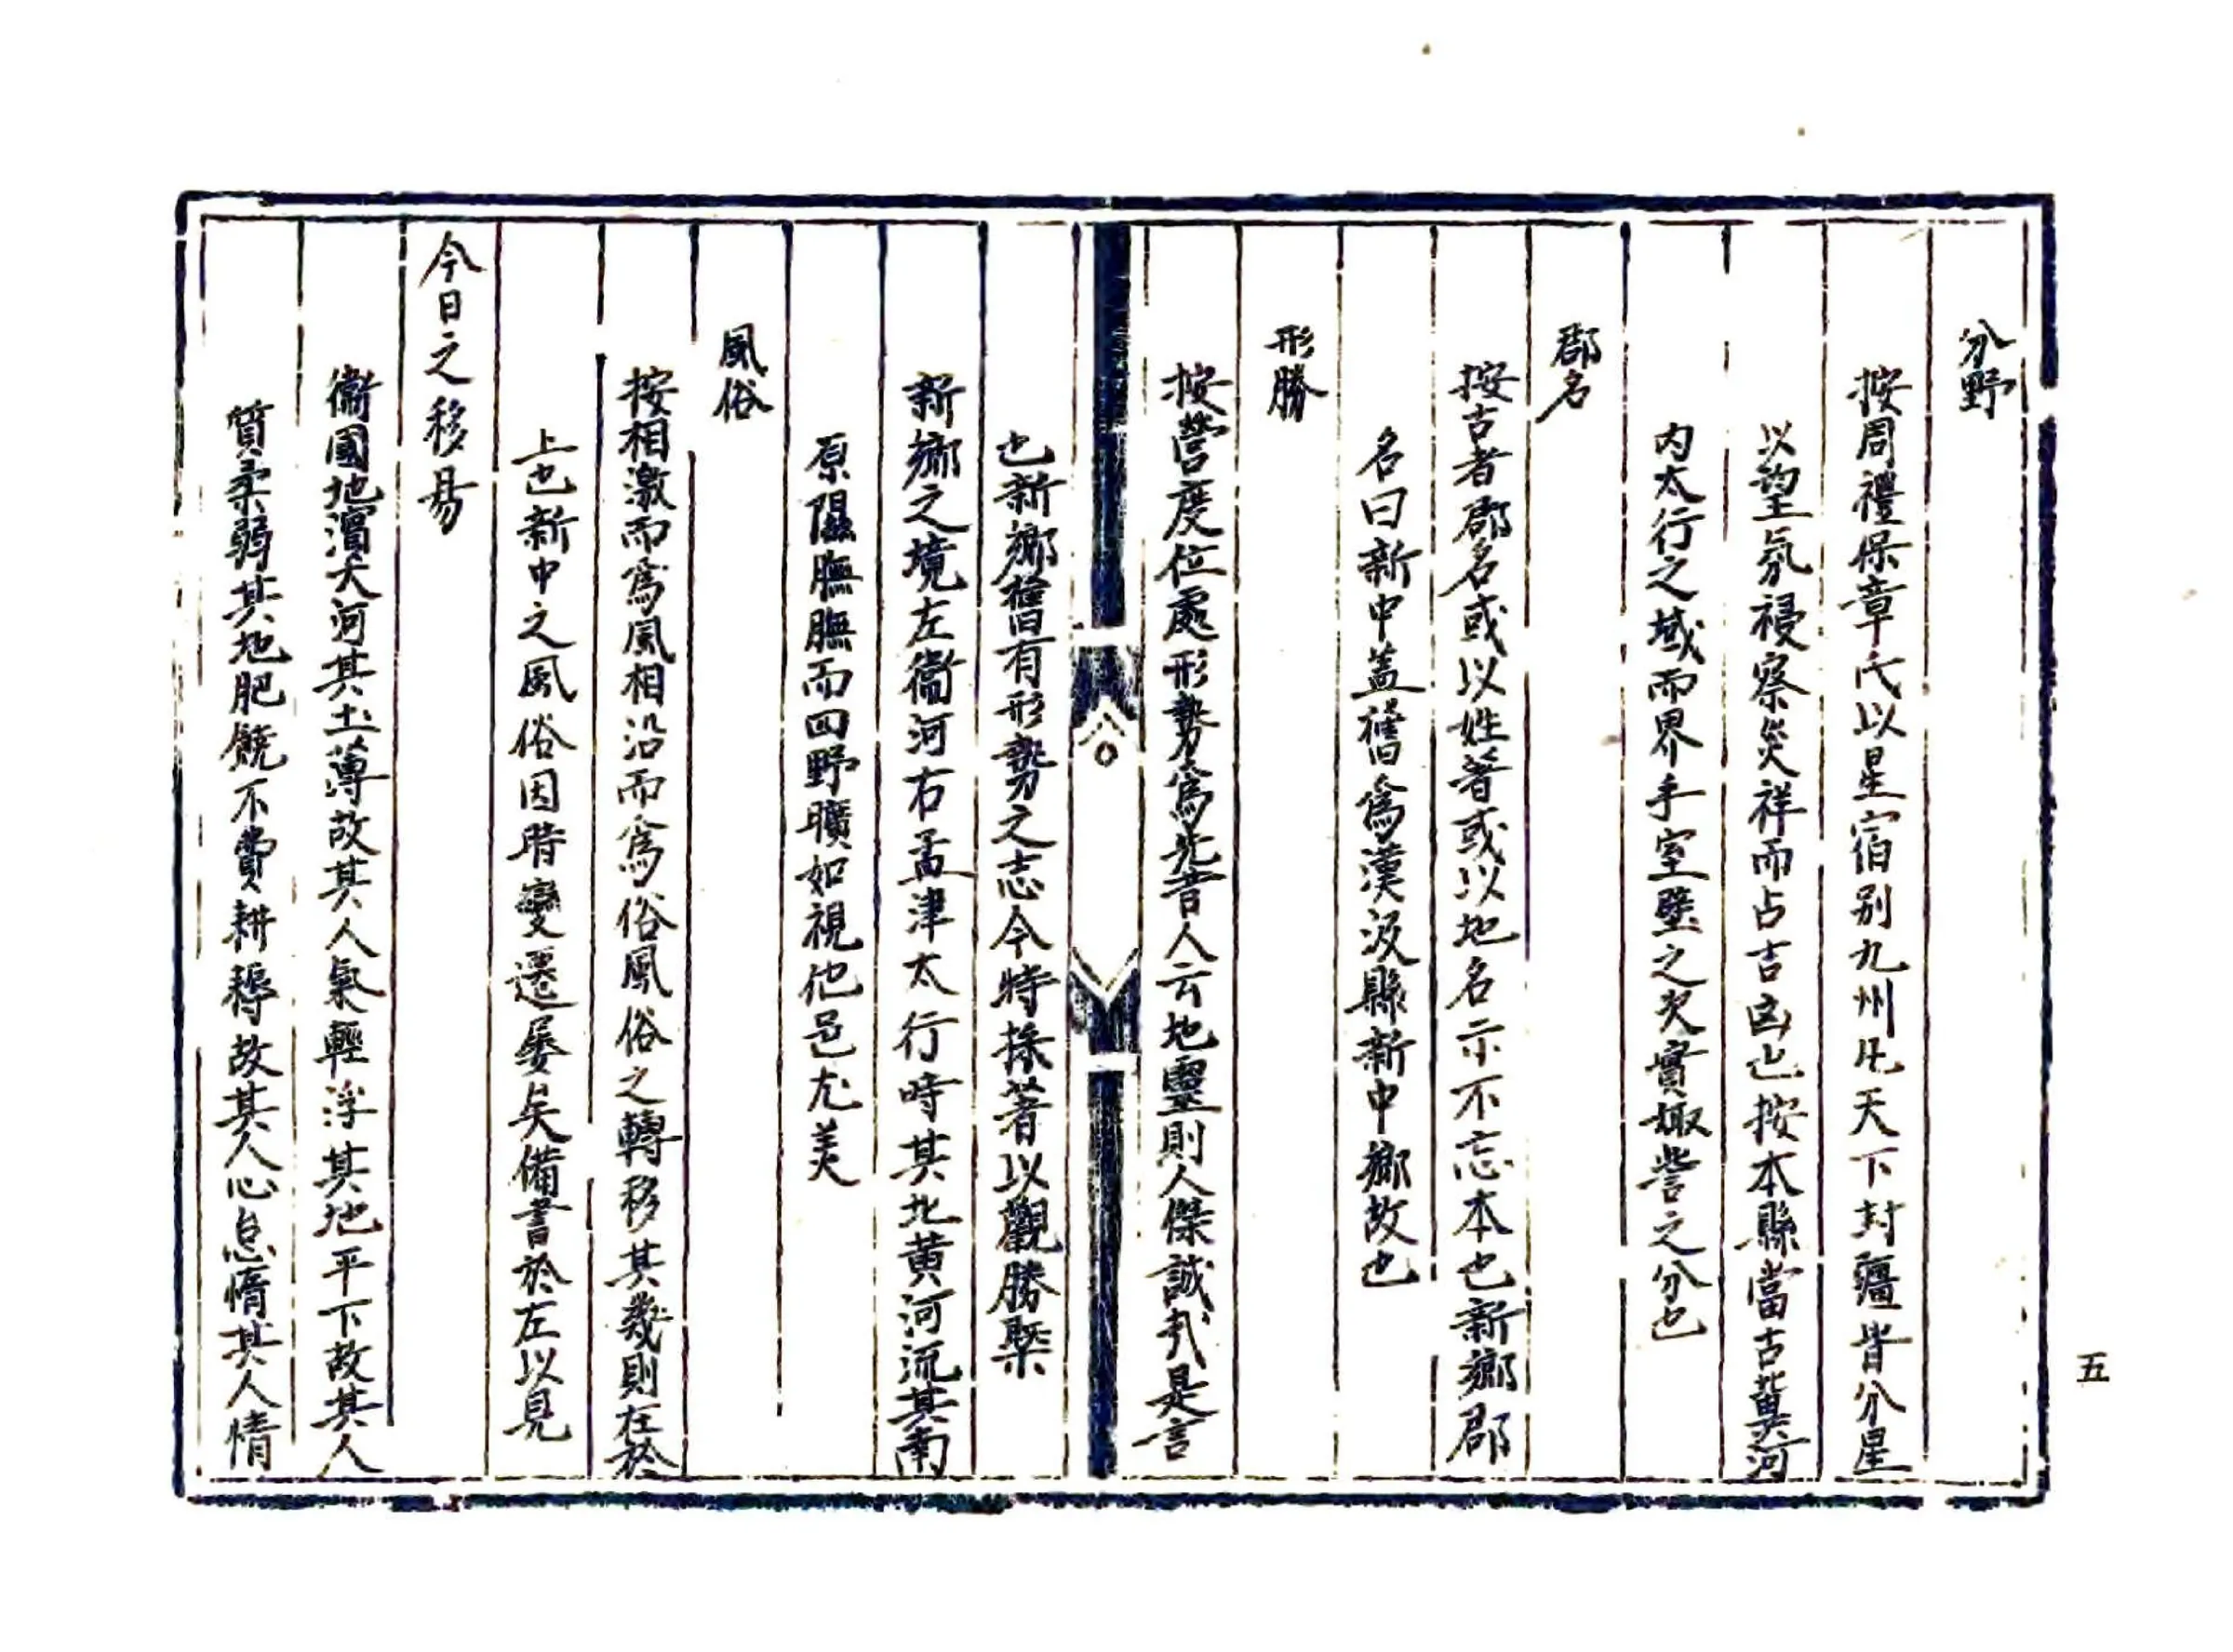 分野
按周禮保章氏以星宿别九州凡天下封疆皆分星
以望氛祲察灾祥而占吉凶也按本縣當古冀河
内太行之域而界乎室壁之次實娵訾之分也
郡名
按古者郡名或以姓著或以地名示不忘本也新鄉郡
名曰新中蓋舊爲漢汲縣新中鄉故也
形勝
按營度位處形勢爲先昔人云地靈則人傑誠哉是言
也新鄉舊有形勢之志今特採著以觀勝槩
新鄉之境左衞河右孟津太行時其北黄河流其南
原隰膴膴而四野曠如視他邑尤美
風俗
按相激而爲風相沿而爲俗風俗之轉移其幾則在於
上也新中之風俗因時變遷屡矣備書於左以見
今日之移易
衞國地濵大河其土薄故其人氣輕浮其地平下故其人
質柔弱其地肥饒不費耕耨故其人心怠惰其人情
五